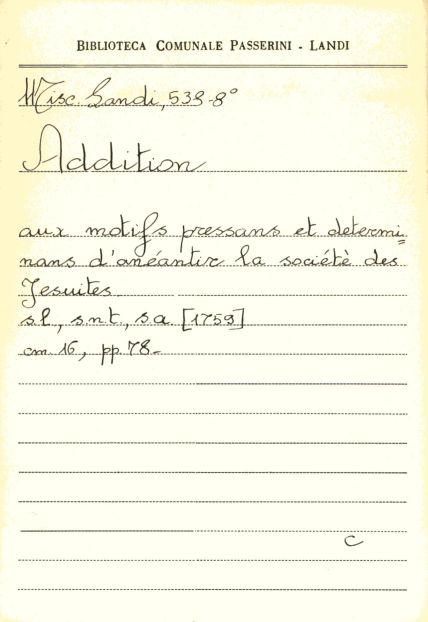 BIBLIOTECA COMUNALE PASSERINI - LANDI
Misc. Landi, 538-8°
Addition
aux motifs pressans et determi=
nans d'anéantir la sociétè des
Jesuites.
s.l., s.n.t., s.a. [1759]
cm. 16, pp. 78-
C